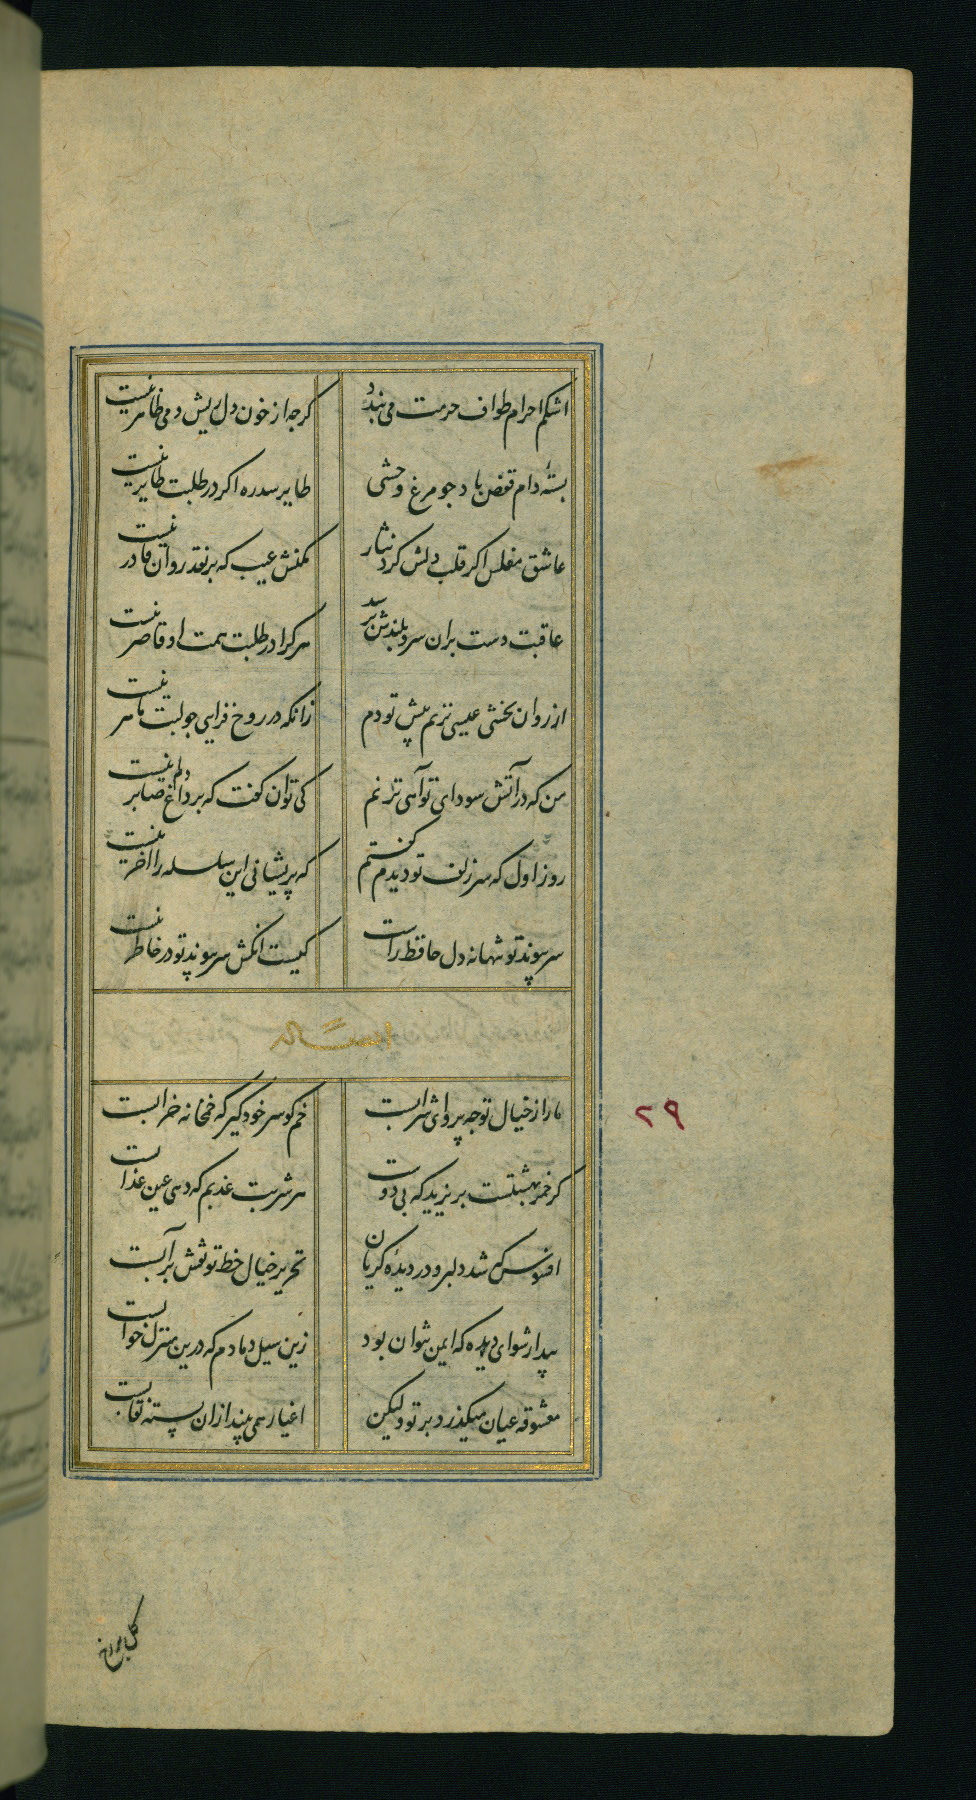 اشکم احرام طواف حرمت می بندد
کرچه از خون دل ریش دمی طاهر نیست
بستهٔ دام قفص باد چو مرغ وحشی
طایر سدره اکر در طلبت طایر نیست
عاشق مفلس اکر قلب دلش کرد نثار
مکنش عیب که بر نقد روان قادر نیست
عاقبت دست بران سرو بلندش برسد
هر کرا در طلبت همت او قاصر نیست
از روان بخشی عیسی نزنم پیش تو دم
زانکه در روح فزایی چو لبت ماهر نیست
من که در آتش سودای تو آهی نزنم
کی توان کفت که بر داغ دلم صابر نیست
روز اول که سر زلف تو دیدم کفتم
که پریشانی این سلسله را آخر نیست
سر پیوند تو تنها نه دل حافظ راست
کیست آنکش سر پیوند تو در خاطر نیست
وله
۲۹
ما را ز خیال تو چه پروای شرابست
خم کو سر خود کیر که خمخانه خرابست
کر خمر بهشتست بریزید که بی دوست
هر شربت عذبم که دهی عین عذابست
افسوس که شد دلبر و در دیدهٔ کریان
تحریر خیال خط تو نقش بر آبست
بیدار شو ای دیده که ایمن نتوان بود
زین سیل دمادم که درین منزل خوابست
معشوقه عیان میکذرد بر تو ولیکن
اغیار همی بیند ازان بسته نقابست
کل بر رخ